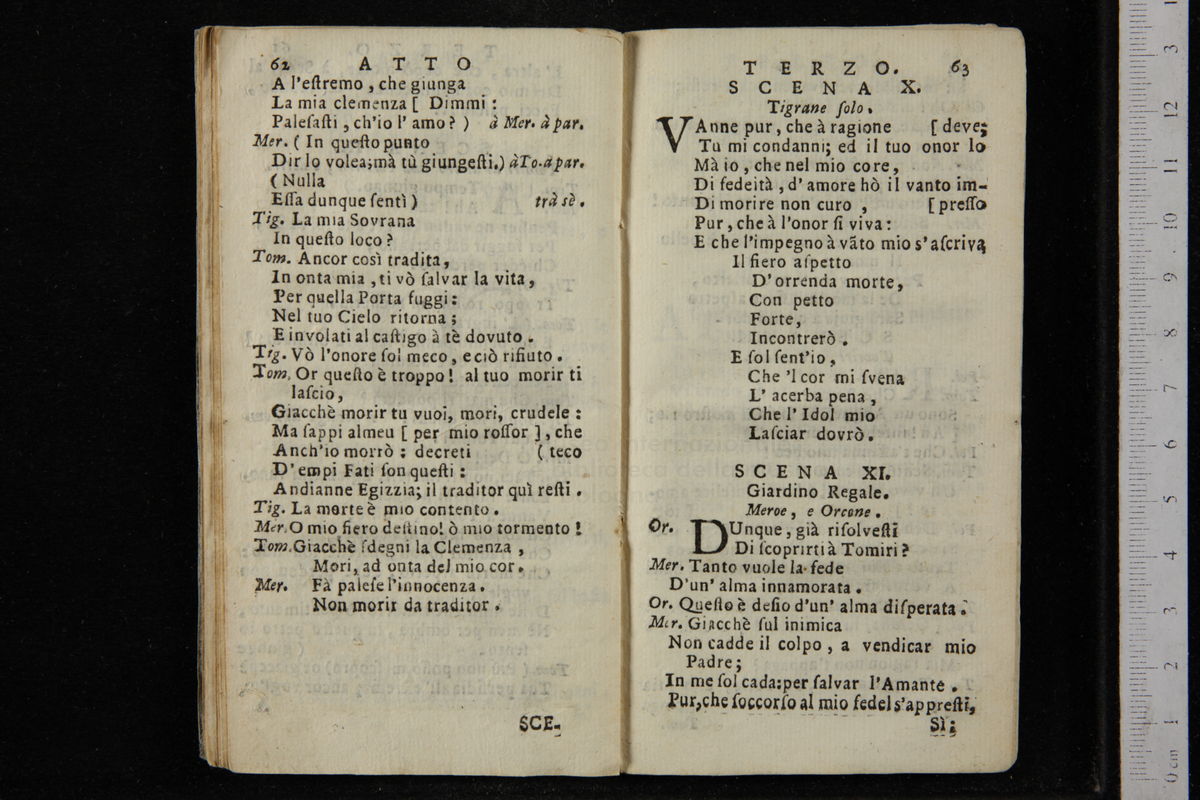 62 A T T O
A l'eſtremo , che giunga
La mia clemenza [ Dimmi :
Paleſaſti , ch'io l' amo ? ) à Mer. à par.
Mer. ( In queſto punto
Dir lo volea;mà tù giungeſti.) àTo.àpar.
( Nulla
Eſſa dunque ſentì ) trà sè .
Tig. La mia Sovrana
In queſto loco ?
Tom. Ancor così tradita,
In onta mia , ti vò ſalvar la vita,
Per quella Porta fuggi :
Nel tuo Cielo ritorna ;
E involati al caſtigo à tè dovuto .
Tig. Vò l'onore ſol meco , e ciò rifiuto .
Tom. Or queſto è troppo ! al tuo morir ti
laſcio,
Giacchè morir tu vuoi, mori, crudele :
Ma ſappi almeu [ per mio roſſor ] , che
Anch'io morrò : decreti ( teco
D' empi Fati ſon queſti :
Andianne Egizzia; il traditor quì reſti .
Tig. La morte è mio contento .
Mer.O mio fiero deſtino! ò mio tormento !
Tom.Giacchè ſdegni la Clemenza ,
Mori, ad onta del mio cor.
Mer. Fà paleſe l'innocenza .
Non morir da traditor .
SCE-
T E R Z O. 63
S C E N A X.
Tigrane ſolo .
VAnne pur, che à ragione [ deve;
Tu mi condanni; ed il tuo onor lo
Mà io , che nel mio core,
Di fedeità , d' amore hò il vanto im-
Di morire non curo , [ preſſo
Pur , che à l'onor ſi viva :
E che l'impegno à vãto mio s' aſcriva
Il fiero aſpetto
D' orrenda morte,
Con petto
Forte,
Incontrerò .
E ſol ſent'io ,
Che 'l cor mi ſvena
L' acerba pena ,
Che l' Idol mio
Laſciar dovrò .
S C E N A XI.
Giardino Regale.
Meroe , e Orcone .
Or. DUnque , già riſolveſti
Di ſcoprirti à Tomiri ?
Mer. Tanto vuole la fede
D'un' alma innamorata .
Or. Queſto è deſio d'un' alma diſperata .
Mer. Giacchè ſul inimica
Non cadde il colpo , a vendicar mio
Padre ;
In me ſol cada:per ſalvar l'Amante .
Pur,che ſoccorſo al mio fedel s'appreſti,
Sì ;